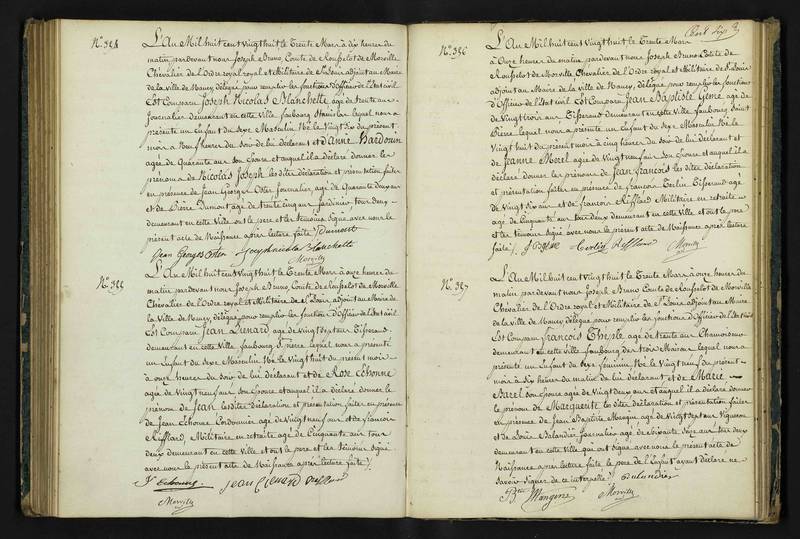 N.º 384
L'An Mil huit cent vingt huit le Trente Mars à dix heures du
matin pardevant nous Joseph Bruno, Comte de Rouffelot de Morville
Chevalier de l'Ordre royal et Militaire de St Louis adjoint au Maire
de la ville de Nancy, délégué pour remplir les fonctions d'Officier de l'état civil
Est Comparu Joseph Nicolas Blanchette, agé de trente
journalier demeurant en cette Ville faubourg Stanislas lequel nous a
présenté un Enfant du Sexe Masculin Né le Vingt dix du présent
mois à heures du soir de lui déclarant et d'Anne Hardouin
agée de Quarante ans son épouse et auquel il a déclaré donner les
prénoms de Nicolas Joseph les dites déclaration et présentation faites
en présence de Jean Georges Oster journalier, agé de Quarante deux ans
et de Pierre Dumont agé de trente cinq ans Jardinier tous deux
demeurant en cette Ville et ont le père et les témoins Signé avec nous le
présent acte de Naissance après lecture faite. Dumont
Jean Georges Oster Joseph nicola Blanchette
Morville
N.º 385
L'An Mil huit cent Vingt huit le Trente Mars à onze heures du
matin pardevant nous Joseph Bruno, Comte de Rouffelot de Morville
Chevalier de l'Ordre royal et Militaire de St Louis, adjoint au Maire de
la ville de Nancy, délégué pour remplir les fonctions d'Officier de l'Etat civil
Est Comparu Jean Lienard agé de vingt sept ans Tisserand
demeurant en cette ville faubourg St Pierre lequel nous a présenté
un Enfant du Sexe Masculin Né le Vingt huit du présent mois
à onze heures du soir de lui déclarant et de Rose Ethonne
agée de Vingt neuf ans son épouse et auquel il a déclaré donner le
prénom de Jean les dites déclaration et présentation faites en présence
de Jean Ethonne Cordonnier agé de vingt neuf ans et de François
Rifflard, Militaire en retraite agé de Cinquante ans tous
deux demeurant en cette Ville et ont le père et les témoins signé
avec nous le présent acte de Naissance après lecture faite.
jean Lienard Rifflard
Morville
N.º 386
L'An Mil huit cent vingt huit le Trente Mars
à Onze heures du matin pardevant nous Joseph Bruno Comte de
Rouffelot de Morville, Chevalier de l'Ordre royal et Militaire de St Louis
adjoint au Maire de la ville de Nancy, délégué pour remplir les fonctions
d'Officier de l'état civil Est Comparu Jean Baptiste Gené agé de
Vingt trois ans Tisserand demeurant en cette Ville faubourg Saint
Pierre lequel nous a présenté un Enfant du Sexe Masculin Né le
Vingt huit du présent mois à cinq heures du soir de lui déclarant et
de Jeanne Morel agée de Vingt neuf ans son épouse et auquel il a
déclaré donner les prénoms de Jean François les dites déclaration
et présentation faites en présence de François Tisserand agé
de Vingt dix ans et de François Rifflard Militaire en retraite
agé de Cinquante ans tous deux demeurant en cette Ville et ont le père
et les témoins signé avec nous le présent acte de Naissance après lecture
faite. Rifflard Morville
N.º 387
L'An Mil huit cent Vingt huit le Trente Mars à onze heures du
matin pardevant nous Joseph Bruno Comte de Rouffelot de Morville
Chevalier de l'Ordre royal et Militaire de St Louis adjoint au Maire
de la Ville de Nancy délégué pour remplir les fonctions d'Officier de l'Etat civil
Est Comparu François Theple agé de trente ans Chamoiseur
demeurant en cette Ville faubourg des trois Maisons lequel nous a
présenté un Enfant du Sexe féminin Né le Vingt neuf du présent
mois à Six heures du matin de lui déclarant et de Marie
Barel son épouse agée de Vingt deux ans et auquel il a déclaré donner
le prénom de Marguerite les dites déclaration et présentation faites
en présence de Jean Baptiste Mangin agé de Vingt sept ans Vigneron
et de Louis Balandier Journalier agé de soixante seize ans tous deux
demeurant en cette Ville qui ont signé avec nous le présent acte de
Naissance après lecture faite le père de l'Enfant ayant déclaré ne
savoir signer de ce interpellé. Balandier
Btte Mangin Morville